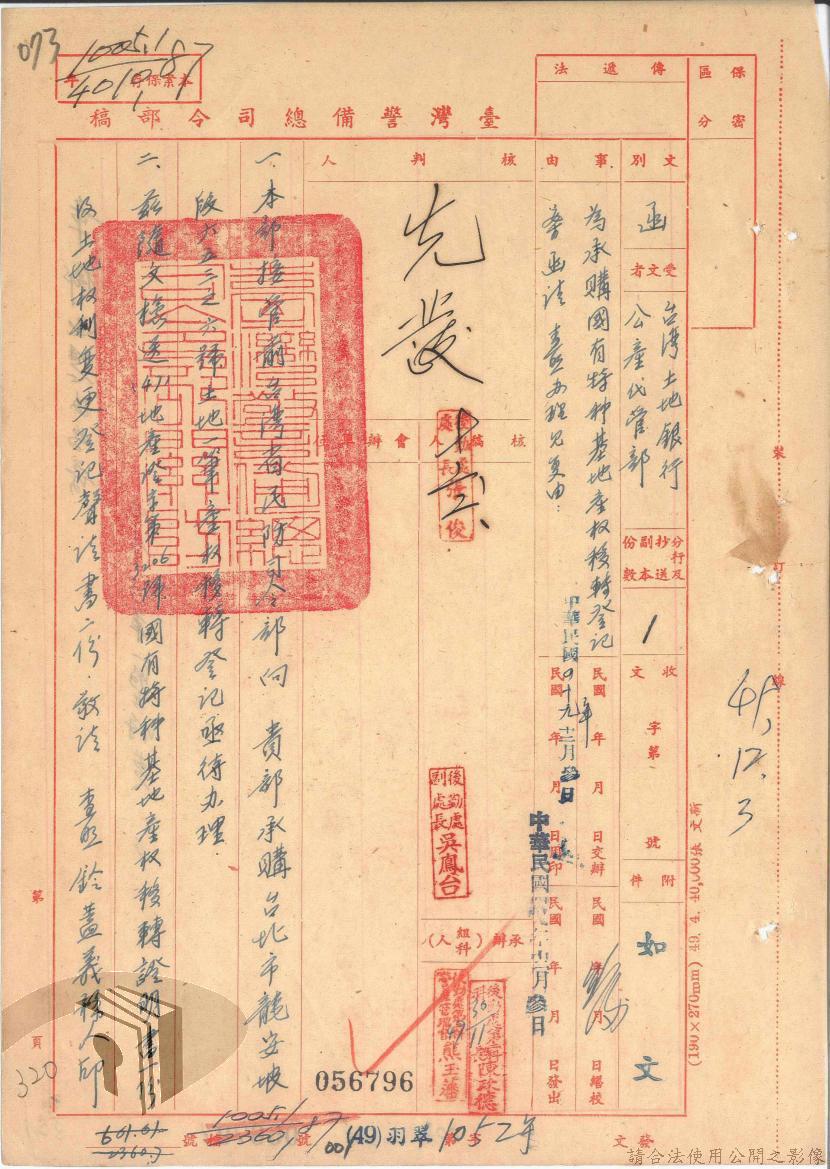 073
1005.1/87
4010/1
本案保存 年
臺灣警備總司令部稿
保密區分
傳遞法
文別
函
受文者
台灣土地銀行
公產代管部
分行及抄送副本份數
1
收文 字第 號
附件
如文
事由
為承購國有特種基地產權移轉登記
民國 年 月 日交辦
民國 年 月 日繕校
民國 年 月 日用印
民國 年 月 日發出
中華民國四十九年十二月叁日
核判人
先發
核稿人
會辦單位
後勤處副處長吳鳳台
承辦(組科人)
熊玉藩
陳政德
30/11
一、本部接管前台灣省民防司令部向 貴部承購台北市龍安坡
段六五三之六號土地一筆產權移轉登記亟待办理.
二、茲隨文檢送(47)地產證字第3206號國有特種基地產權移轉證明書一份
及土地權利變更登記聲請書二份.敬請 查照鈐蓋義務人印
056796
裝
訂
線
49.12.3
(190×270mm) 49. 4. 40,000張 文新
第 頁
320
發文(49)羽翠 字第1052號
檔號
請合法使用公開之影像